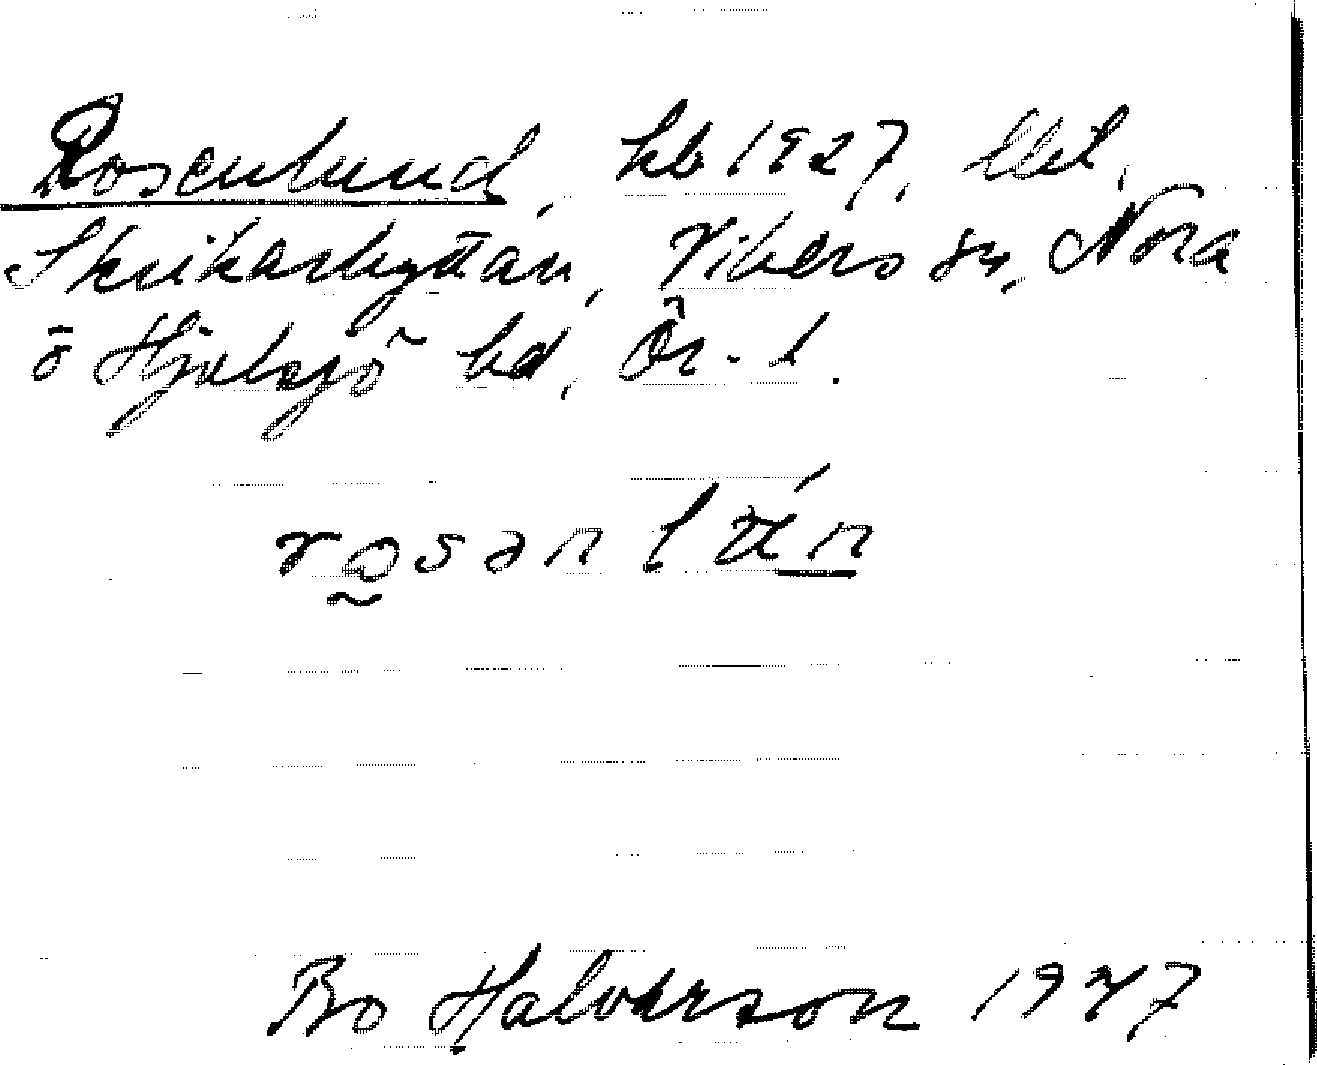 Rosenlund, hb 1927, lht,
Skrikarhyttan, Vikers sn, Nora
o Hjulsjö bd, Ör. l.
rosən lún
Bo Halvarson 1947